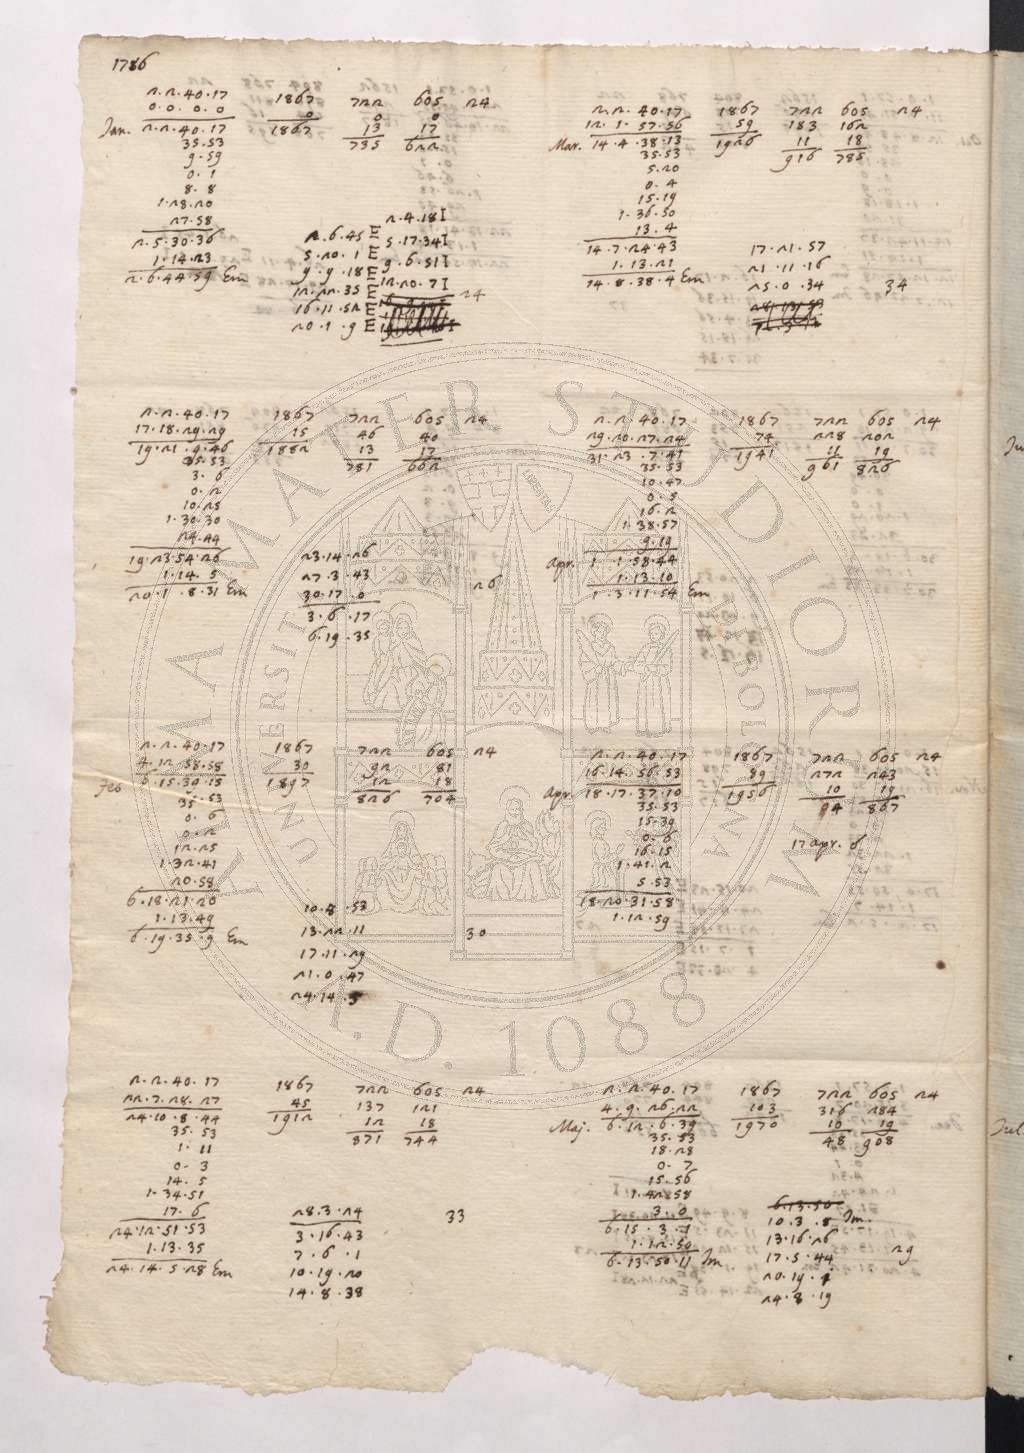 1786
2.2.40.17 1867 722 605 24
0.0.0.0 0 0 0
Jan. 2.2.40.17 1867 13 17
35.53 735 622
9.59
0.1
8.8
1.28.20
27.58
2.5.30.36
1.14.23
2.6.44.59 Em
2.6.45 E
5.20.1 E
9.9.18 E
12.22.35 E
16.11.52 E
20.1.9 E
2.4.18 I
5.17.34 I
9.6.51 I
12.20.7 I
24
2.2.40.17 1867 722 605 24
17.18.29.29 15 46 40
19.21.9.46 1882 13 17
35.53 781 662
3.6
0.2
10.25
1.30.30
24.44
19.23.54.26
1.14.5
20.1.8.31 Em
23.14.26
27.3.43
30.17.0
3.6.17
6.19.35
26
2.2.40.17 1867 722 605 24
4.12.58.58 30 92 81
Feb 6.15.39.15 1897 12 18
35.53 826 704
0.6
0.2
12.25
1.32.41
20.58
6.18.21.20
1.13.49
6.19.35.9 Em
10.8.53
13.22.11
17.11.29
21.0.47
24.14.5
30
2.2.40.17 1867 722 605 24
22.7.28.27 45 137 121
24.10.8.44 1912 12 18
35.53 871 744
1.11
0.3
14.5
1.34.51
17.6
24.12.51.53
1.13.35
24.14.5.28 Em
28.3.24
3.16.43
7.6.1
10.19.20
14.8.38
33
2.2.40.17 1867 722 605 24
12.1.57.56 59 183 162
Mar. 14.4.38.13 1926 11 18
35.53 916 785
5.20
0.4
15.19
1.36.50
13.4
14.7.24.43
1.13.21
14.8.38.4 Em
17.21.57
21.11.16
25.0.34
34
2.2.40.17 1867 722 605 24
29.20.27.24 74 228 202
31.23.7.41 1941 11 19
35.53 961 826
10.47
0.5
16.2
1.38.57
9.19
Apr. 1.1.58.44
1.13.10
1.3.11.54 Em
2.2.40.17 1867 722 605 24
16.14.56.53 89 272 243
Apr. 18.17.37.10 1956 10 19
35.53 94 867
15.39
0.6
16.15
1.41.2
5.53
18.20.31.58
1.12.59
17 apr. 6
2.2.40.17 1867 722 605 24
4.9.26.22 103 316 284
Maj. 6.12.6.39 1970 10 19
35.53 48 908
18.28
0.7
15.56
1.42.58
3.0
6.15.3.1
1.12.50
6.13.50.11 Im
6.13.50
10.3.8 Im.
13.16.26
17.5.44
20.19.1
24.8.19
29
ALMA MATER STUDIORUM
UNIVERSITAS BOLOGNA
LIBERTAS
A.D. 1088